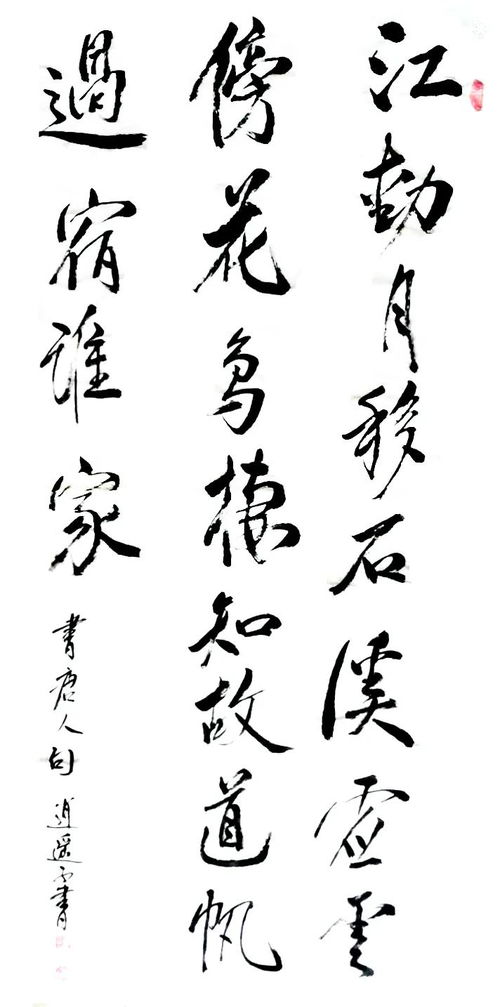 江動月移石溪虚雲
傍花鳥棲知故道帆
過宿誰家
書唐人句 逍遥書